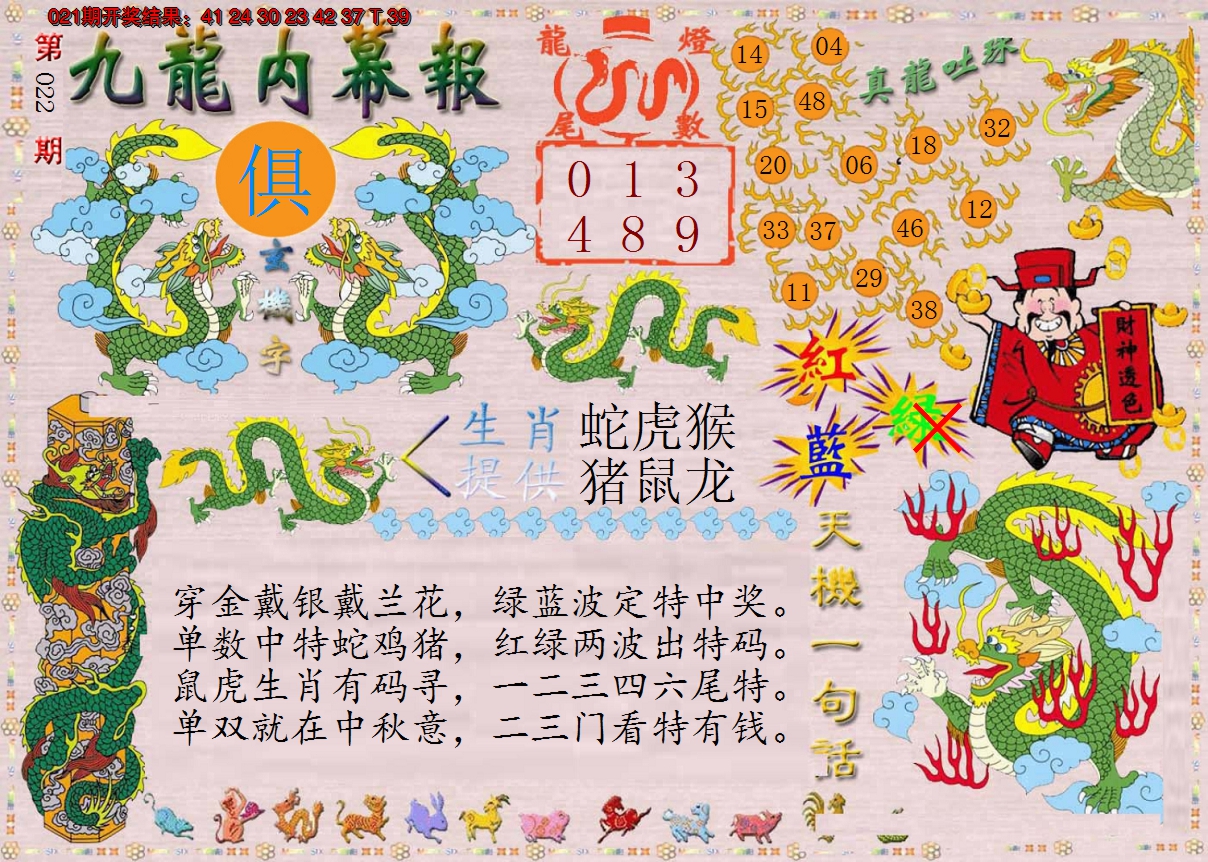 021期开奖结果：41 24 30 23 42 37 T 39
第022期
九龍内幕報
俱
玄機字
龍燈
尾數
0 1 3
4 8 9
真龍吐珠
14
04
15
48
18
32
20
06
12
33
37
46
29
11
38
紅
绿
藍
財神透色
生肖
提供
蛇虎猴
猪鼠龙
穿金戴银戴兰花，绿蓝波定特中奖。
单数中特蛇鸡猪，红绿两波出特码。
鼠虎生肖有码寻，一二三四六尾特。
单双就在中秋意，二三门看特有钱。
天機一句話